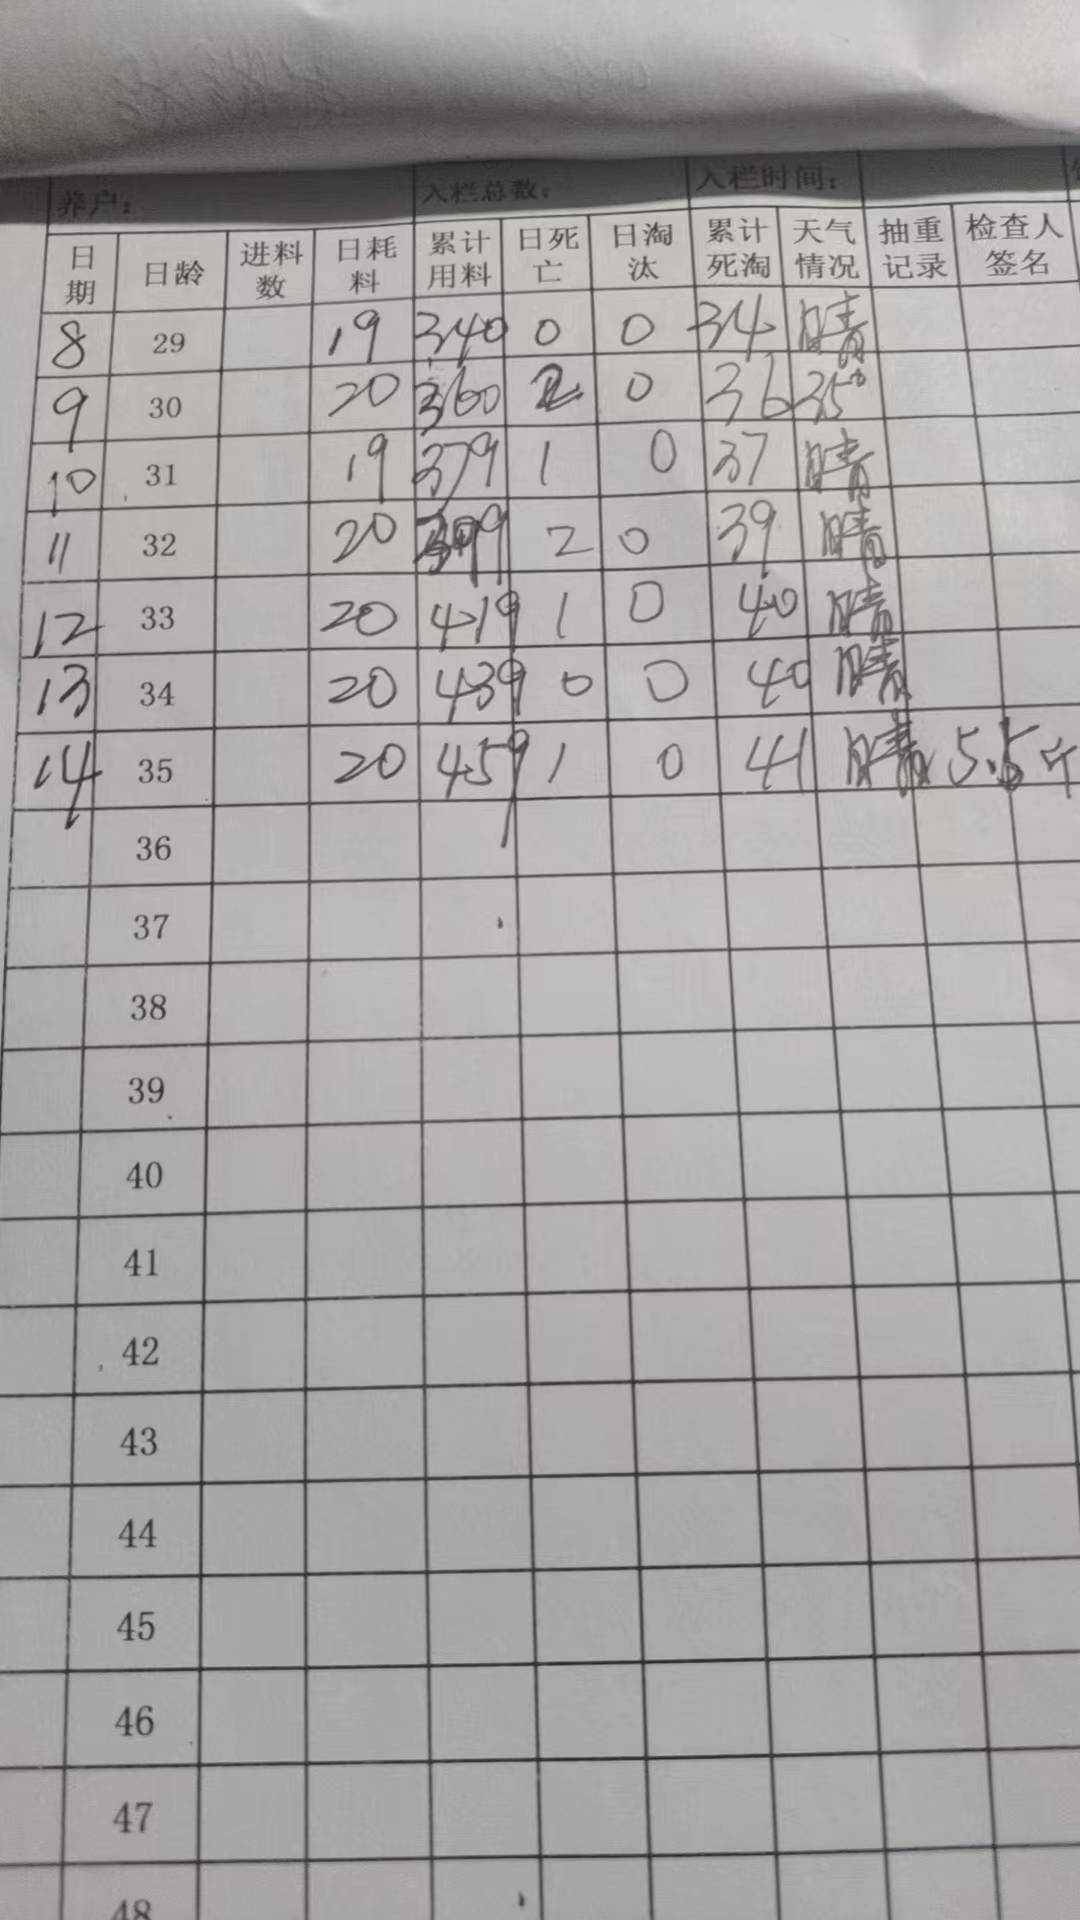 养户： 入栏总数： 入栏时间：
日期 日龄 进料数 日耗料 累计用料 日死亡 日淘汰 累计死淘 天气情况 抽重记录 检查人签名
8 29 19 340 0 0 34 晴
9 30 20 360 2 0 36 35°
10 31 19 379 1 0 37 晴
11 32 20 399 2 0 39 晴
12 33 20 419 1 0 40 晴
13 34 20 439 0 0 40 晴
14 35 20 459 1 0 41 晴 5.5斤
36
37
38
39
40
41
42
43
44
45
46
47
48